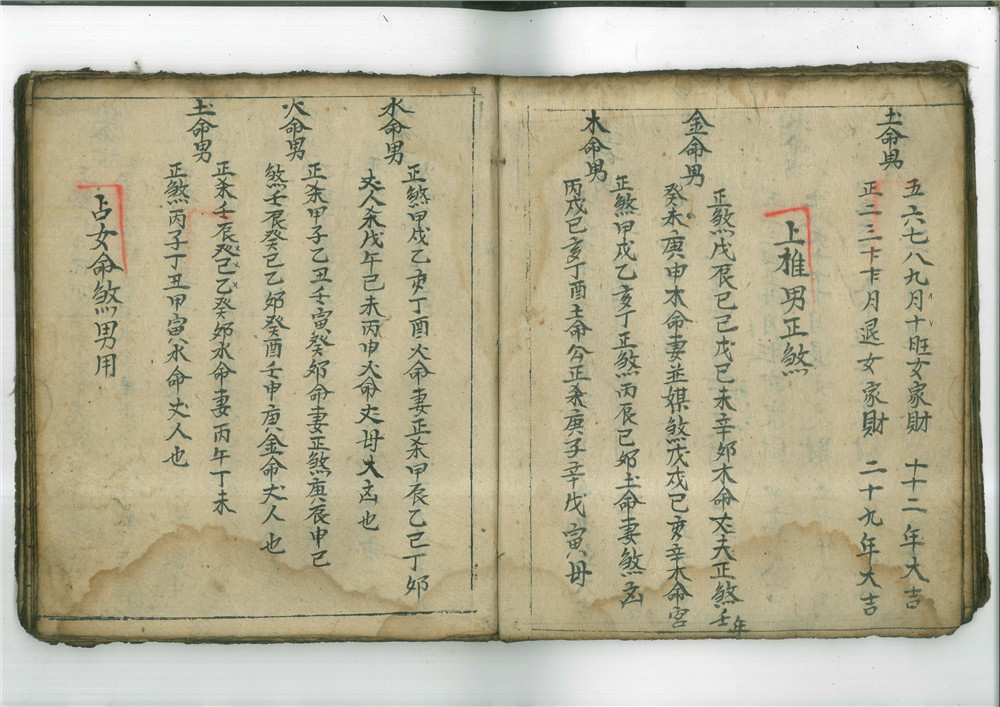 土命男
五六七八九月十旺女家財 十二年大吉
正二三十十月退女家財 二十九年大吉
上推男正煞
金命男
正煞戊辰己巳戊己未辛卯木命丈夫正煞壬年
癸未庚申木命妻並媒煞戊戌己亥辛木命宮
木命男
正煞甲戌乙亥丁正煞丙辰己卯土命妻煞凶
丙戌己亥丁酉土命公正杀庚子辛戊寅母
水命男
正煞甲戌乙亥丁酉火命妻正杀甲辰乙己丁卯
丈人杀戊午己未丙申火命丈母大凶也
火命男
正杀甲子乙丑壬寅癸卯命妻正煞庚辰申巳
煞壬辰癸巳乙卯癸酉壬申庚金命丈人也
土命男
正杀壬辰癸巳乙癸卯水命妻丙午丁未
正煞丙子丁丑甲寅水命丈人也
占女命煞男用